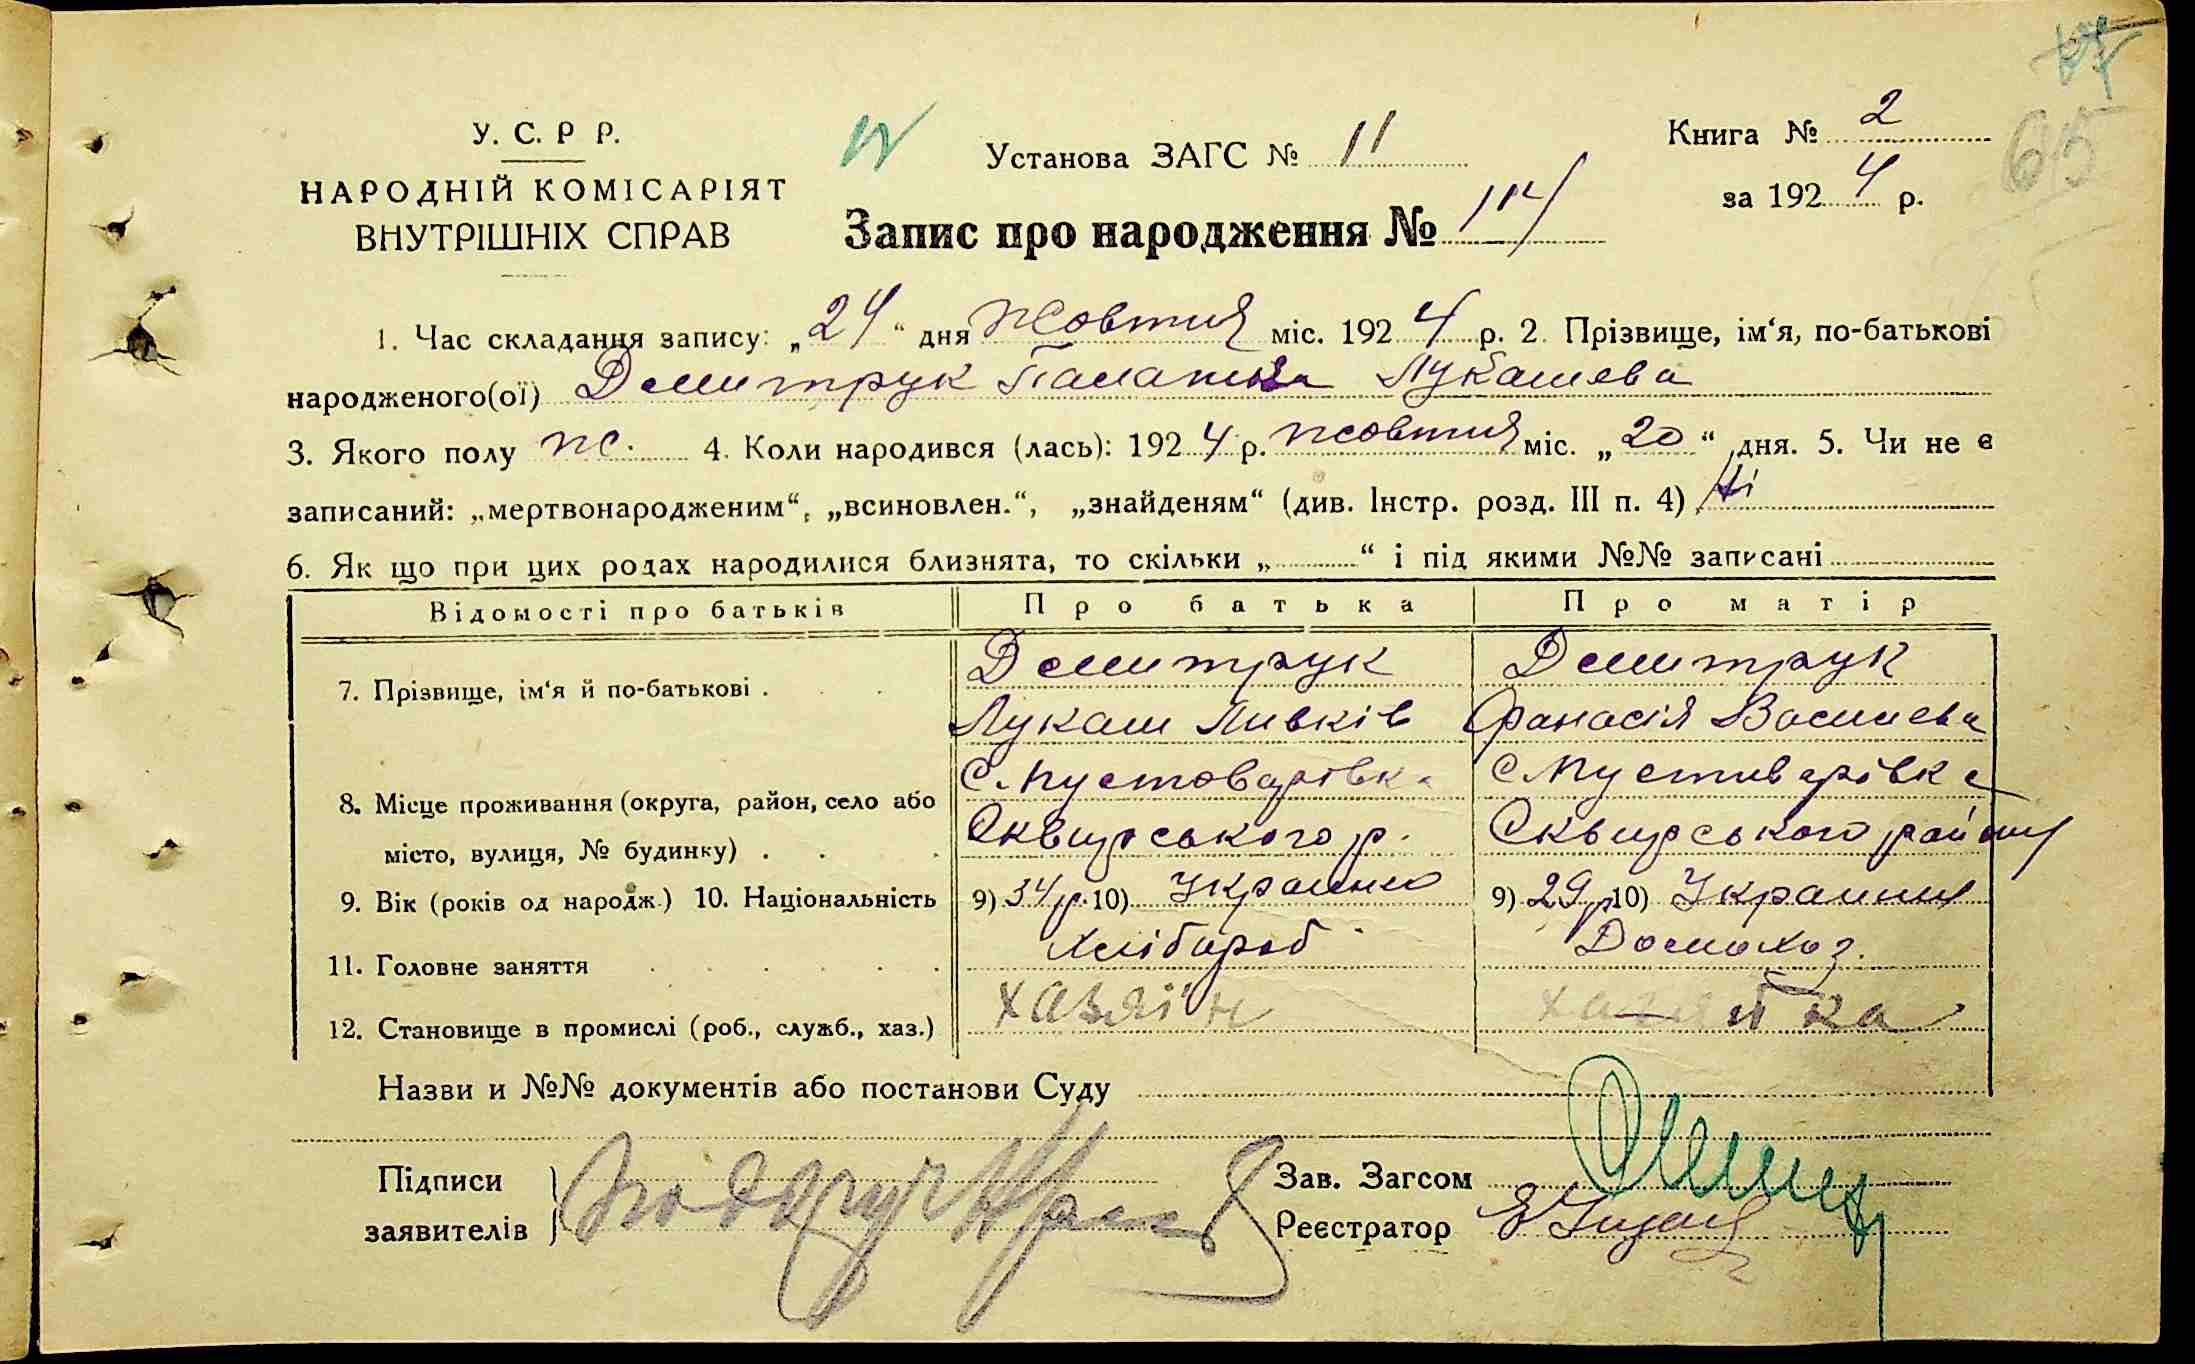 65
У. С. Р Р.
НАРОДНІЙ КОМІСАРІЯТ
ВНУТРІШНІХ СПРАВ
Установа ЗАГС № 11
Книга № 2
за 1924 р.
Запис про народження № 114
1. Час складання запису: „24“ дня Жовтня міс. 1924 р. 2. Прізвище, ім‘я, по-батькові
народженого(ої) Демитрук Палажка Лукашева
3. Якого полу ж. 4. Коли народився (лась): 1924 р. жовтня міс. „20“ дня. 5. Чи не є
записаний: „мертвонародженим“, „всиновлен.“, „знайденям“ (див. Інстр. розд. III п. 4) Ні
6. Як що при цих родах народилися близнята, то скільки „ “ і під якими №№ записані
Відомості про батьків Про батька Про матір
7. Прізвище, ім‘я й по-батькові . Демитрук Демитрук
Лукаш Ливків Фанасія Васильева
8. Місце проживання (округа, район, село або С. Пустоварівка С Пустиварівка
місто, вулиця, № будинку) . Сквирського р. Сквирського району
9. Вік (років од народж.) 10. Національність 9) 34 р. 10) Украинец 9) 29 р 10) Украинка
11. Головне заняття Хлібороб Домохоз.
12. Становище в промислі (роб., служб., хаз.) хазяїн хазяйка
Назви и №№ документів або постанови Суду
Підписи
заявителів
Зав. Загсом
Реєстратор